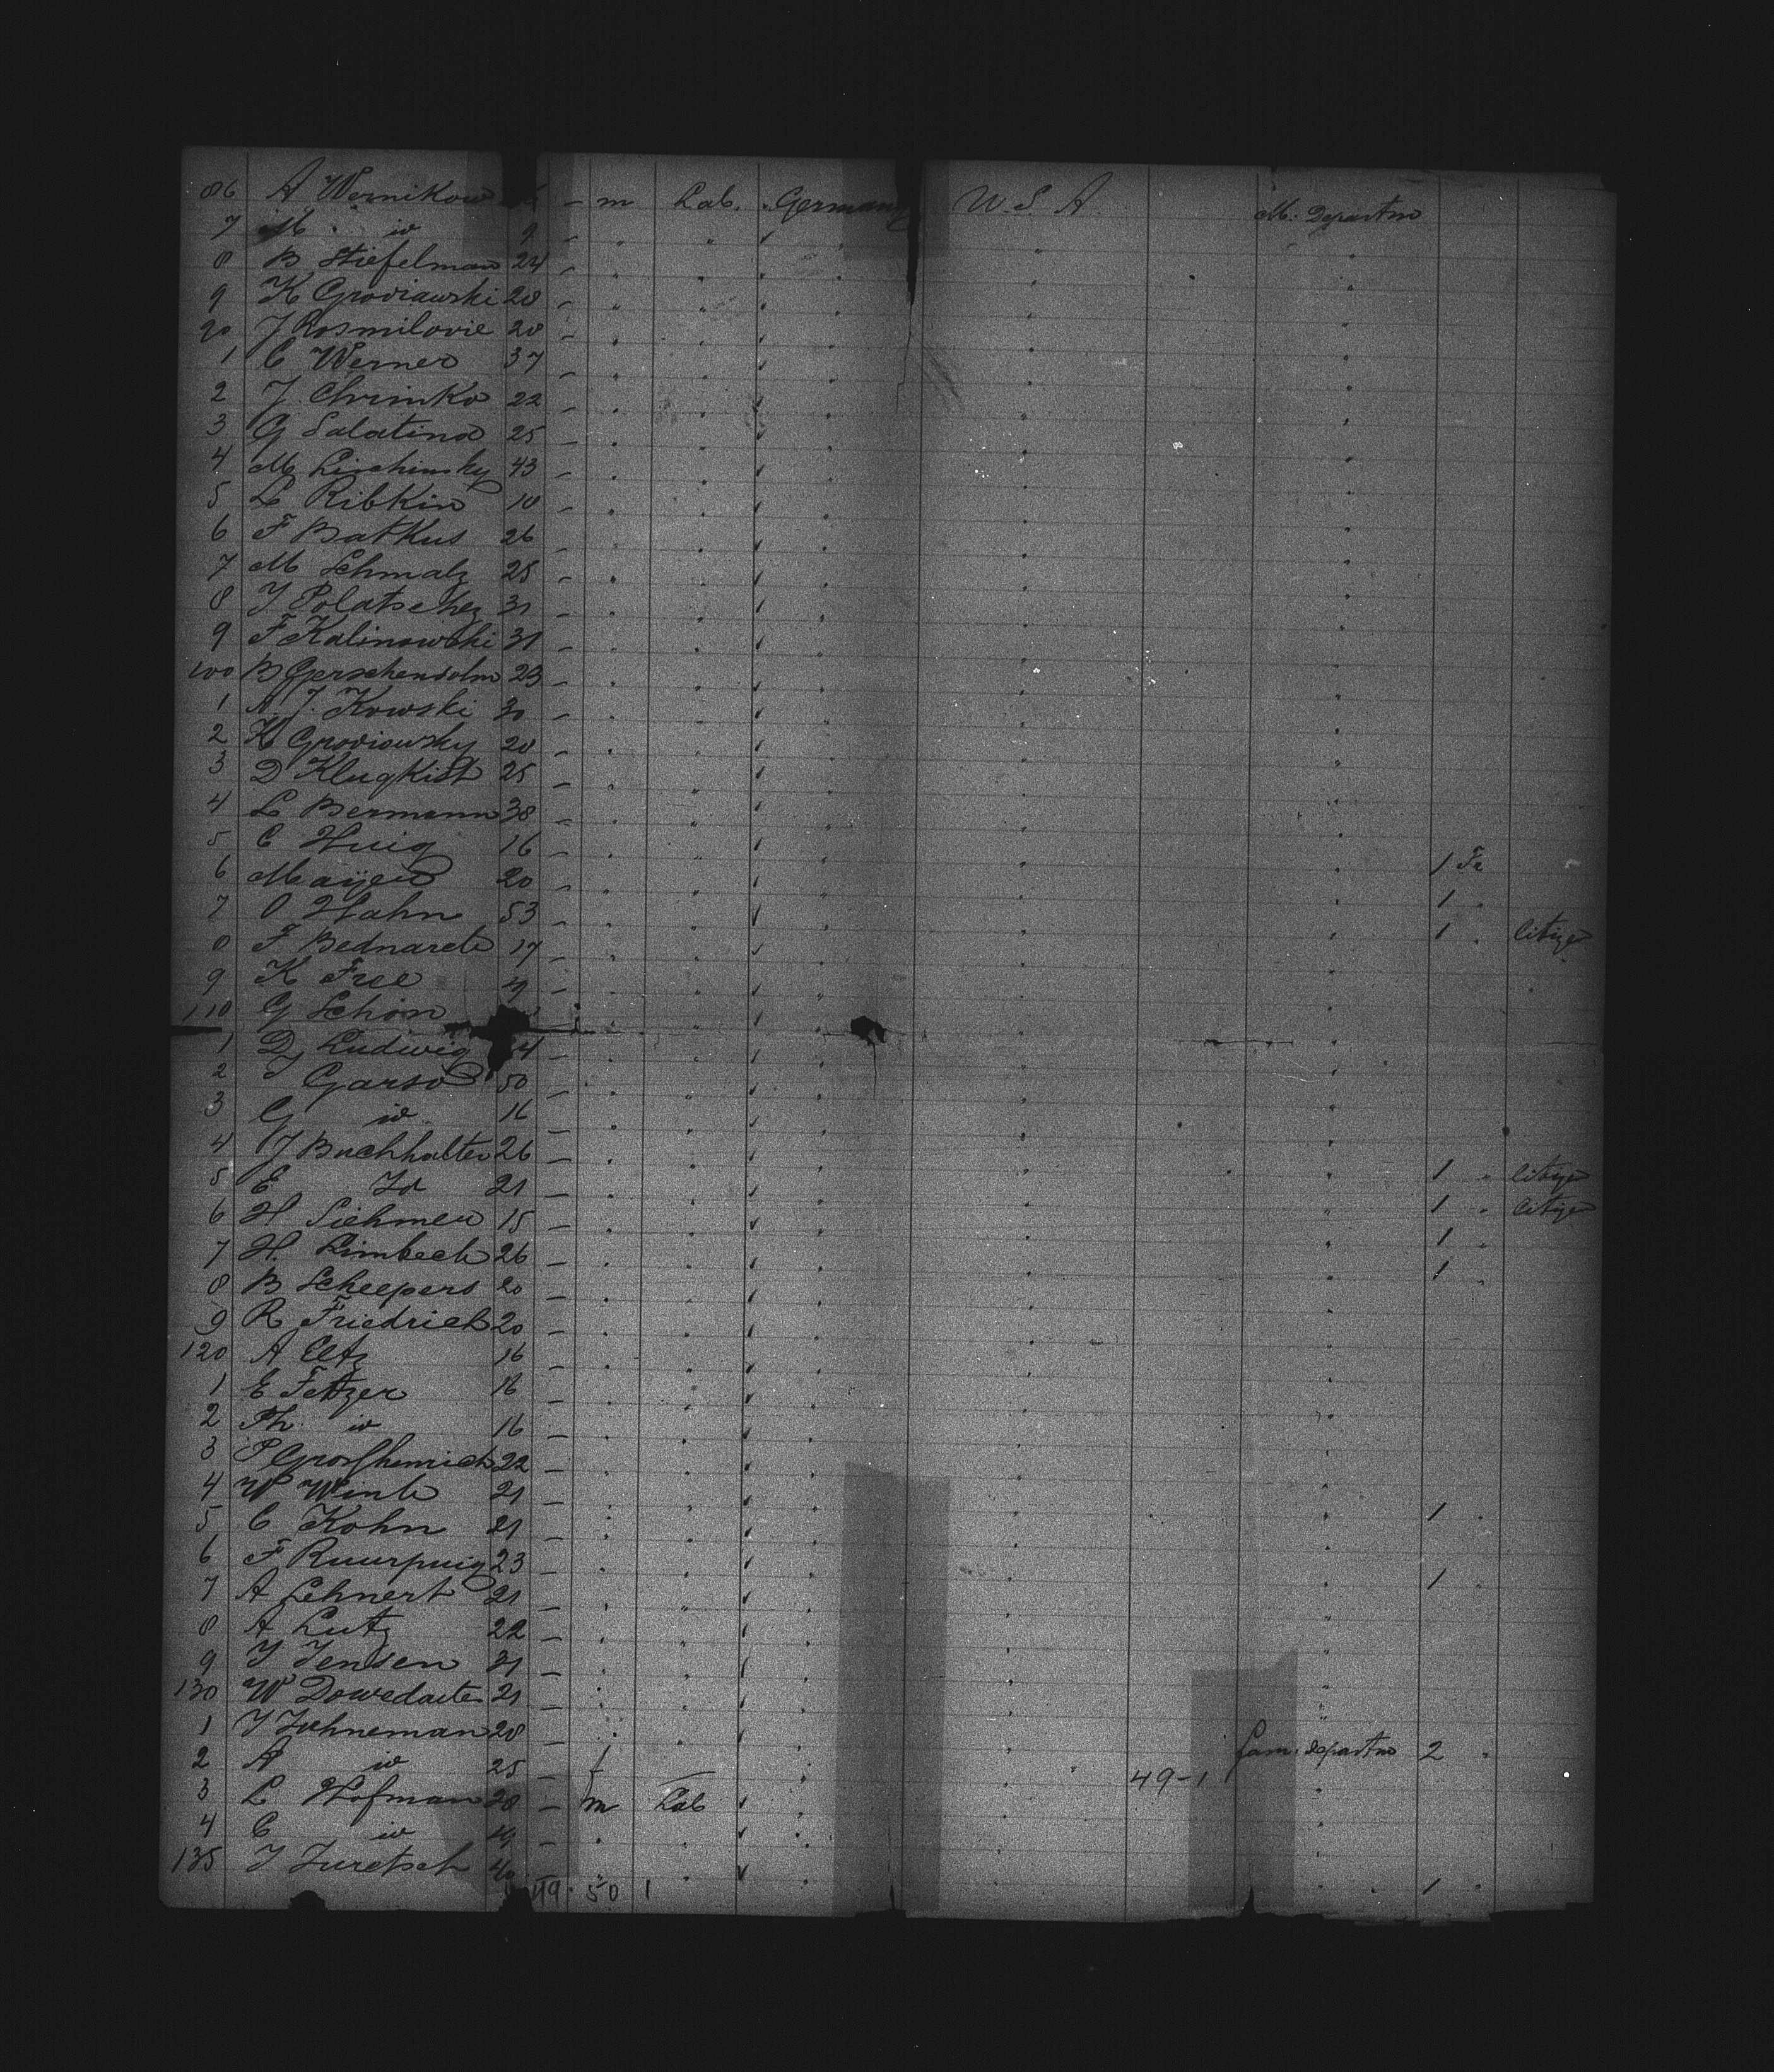 86 A Wernikow m Lab. Germany U.S.A. M. Departm
7 M id 9
8 B Stiefelman 24
9 K Groviawski 20
90 J Rosmilovie 20
1 C Werner 37
2 J. Chrimko 22
3 G Salatino 25
4 M Lischinsky 43
5 L Ribkin 18
6 F Batkus 26
7 M Schmalz 25
8 J Polatschez 31
9 F Kalinowski 31
100 B Gerschensolm 23
1 A. J. Kowski 30
2 K Groviowsky 20
3 D Klugkist 25
4 L Bermann 38
5 C Huig 16 1 Fr
6 Mayer 20 1
7 O Hahn 53 1 Citize
8 F Bednarek 17
9 K Free 4
110 G Schön
1 D Ludwig 4
2 J Garso 50
3 G id 16
4 J Buchhalter 26 1 Citize
5 E Id 21 1 Citize
6 H Siehmer 15 1
7 H. Limbeck 26 1
8 B Scheepers 20
9 R Friedrich 20
120 A Eltz 16
1 E Fetzer 18
2 Ph. id 16
3 P Grosshemrich 22
4 W Wink 21 1
5 C Kohn 21
6 F Ruurpuig 23 1
7 A Lehnert 21
8 A Lutz 22
9 J Jensen 31
130 W Dowedaite 21
1 J Jühneman 28 Fam. departm 2
2 A id 25 f 49-1
3 L Hofman 28 m Lab
4 C id 19
135 J Juretsch 40 1
49. 50 1